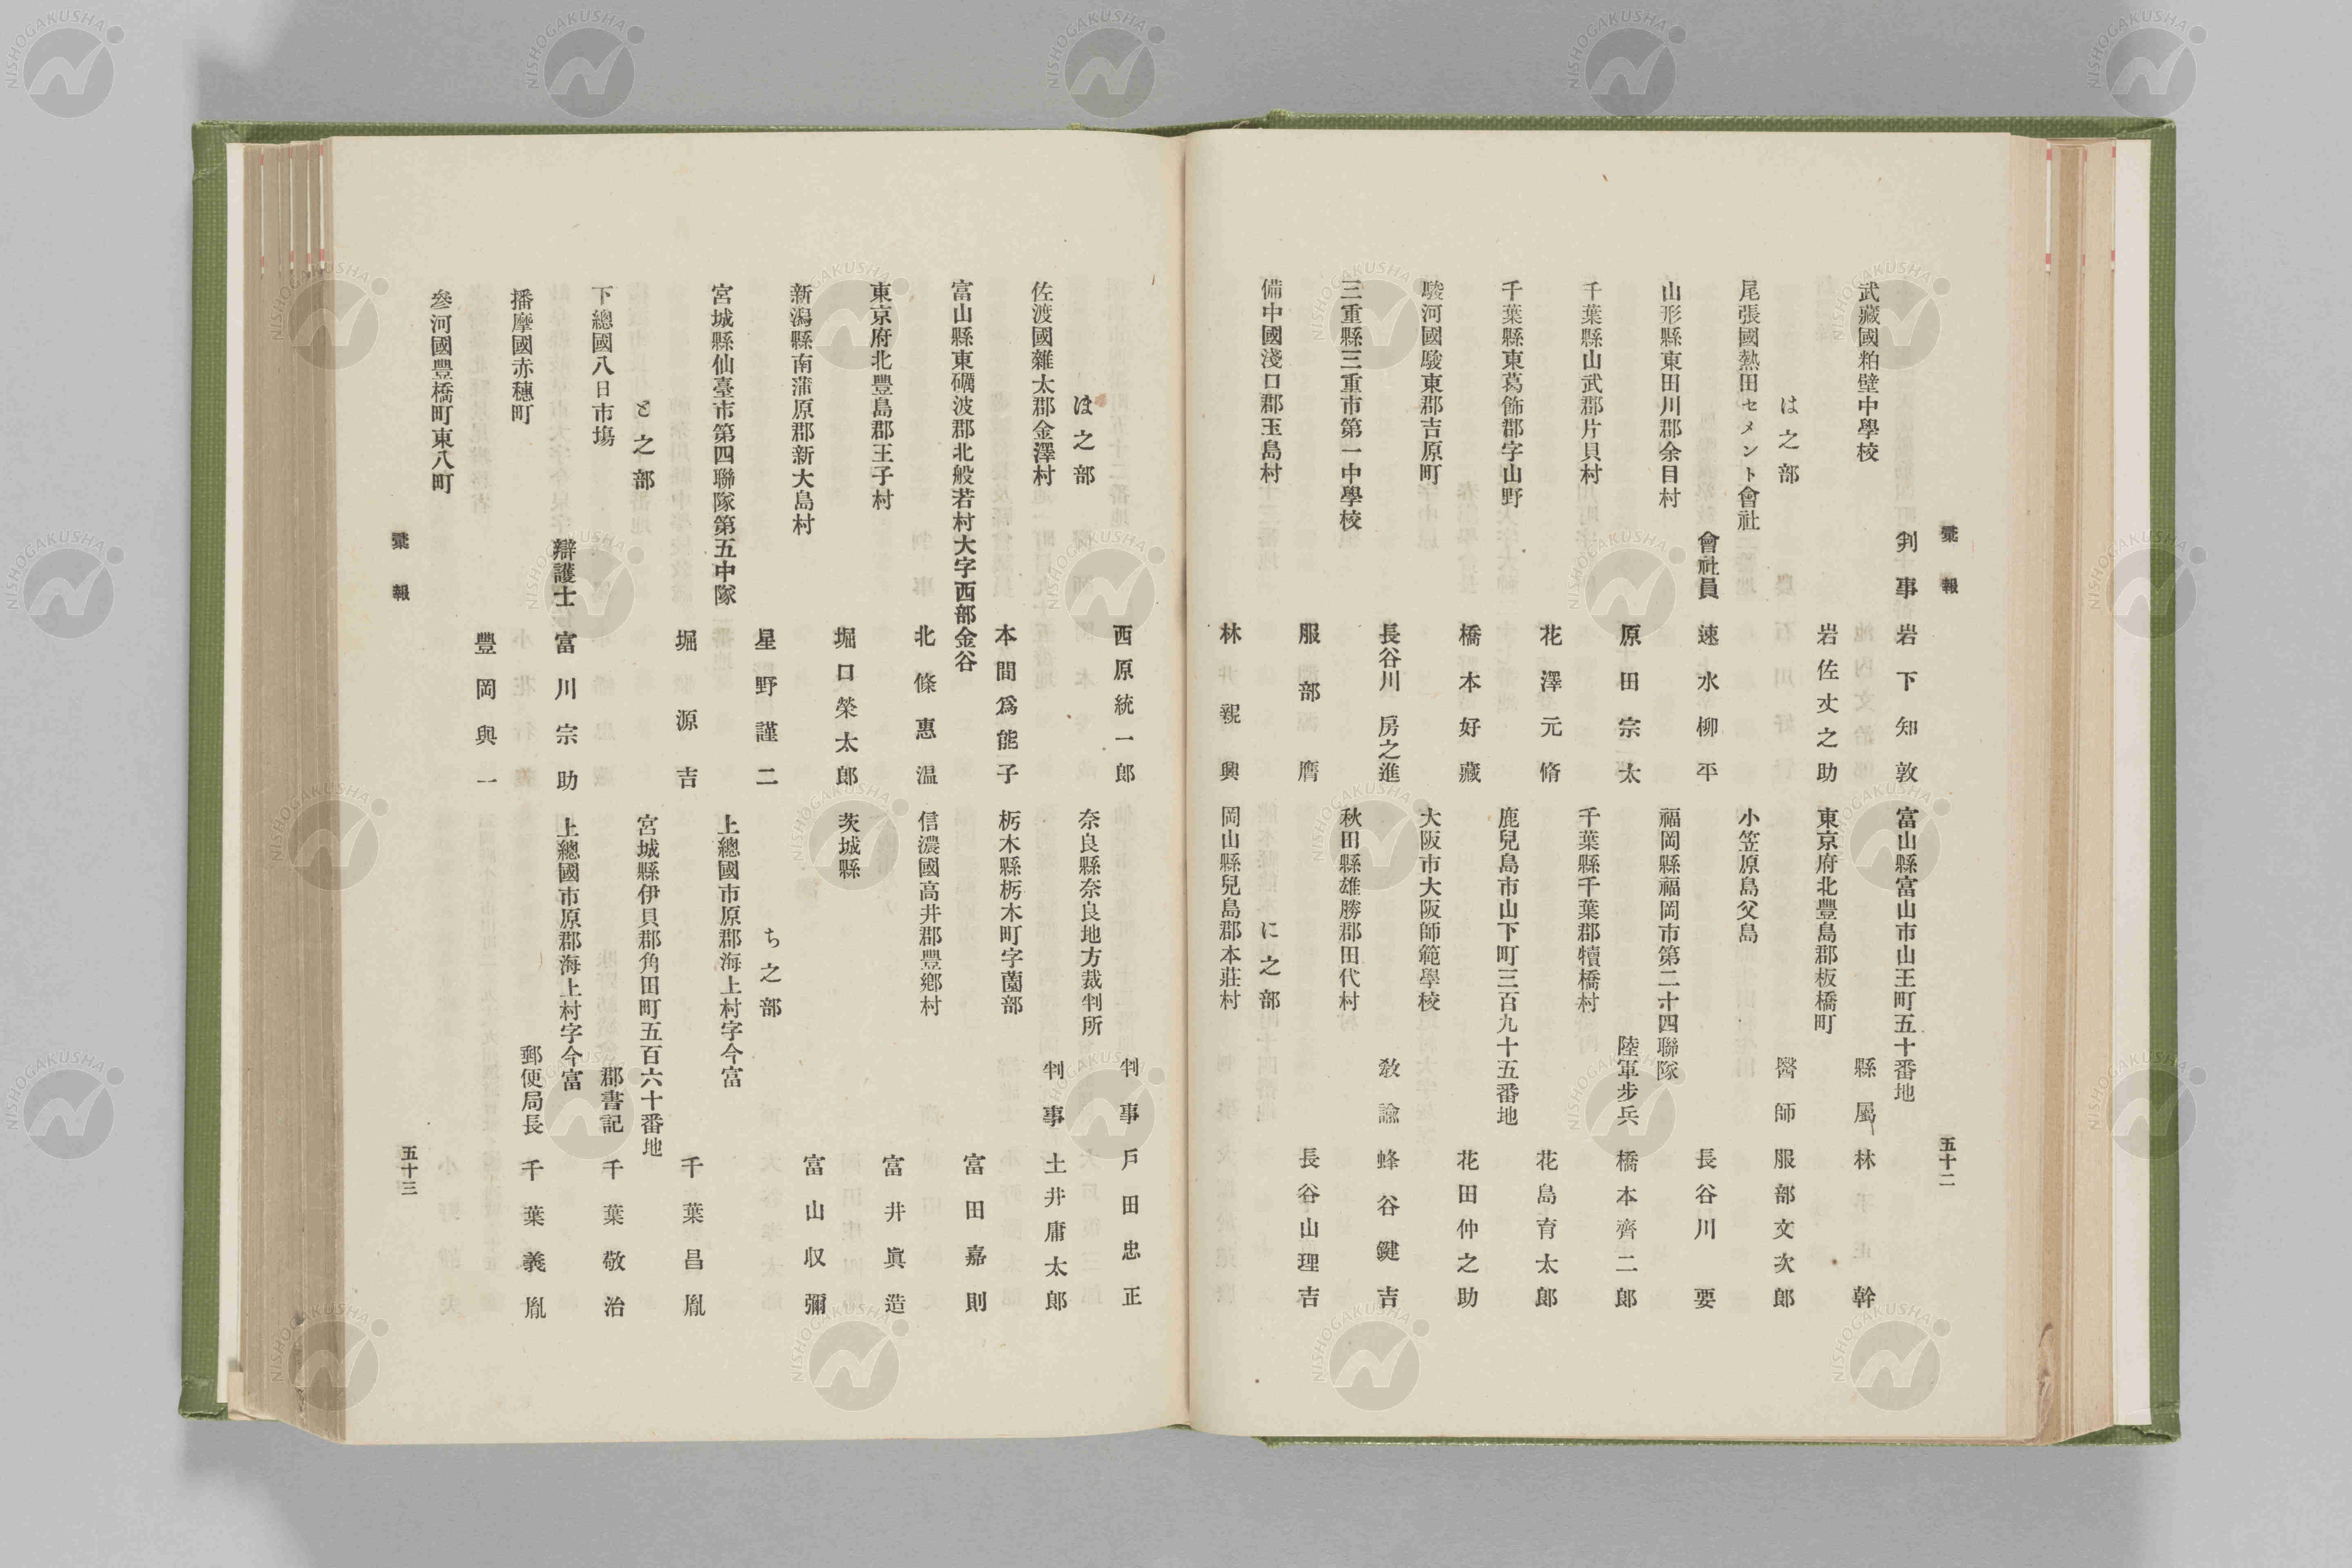 彙報
判事 岩下知敦
武藏國粕壁中學校
岩佐丈之助
は之部
尾張國熱田セメント會社
會社員 速水柳平
山形縣東田川郡余目村
原田宗太
千葉縣山武郡片貝村
花澤元脩
千葉縣東葛飾郡字山野
橋本好藏
駿河國駿東郡吉原町
長谷川房之進
三重縣三重市第一中學校
服部膺
備中國淺口郡玉島村
林親興
富山縣富山市山王町五十番地
縣屬 林幹
東京府北豐島郡板橋町
醫師 服部文次郎
小笠原島父島
長谷川要
福岡縣福岡市第二十四聯隊
陸軍步兵 橋本齊二郎
千葉縣千葉郡犢橋村
花島育太郎
鹿兒島市山下町三百九十五番地
花田仲之助
大阪市大阪師範學校
敎諭 蜂谷鍵吉
秋田縣雄勝郡田代村
長谷山理吉
に之部
岡山縣兒島郡本莊村
五十二
西原統一郎
ほ之部
佐渡國雜太郡金澤村
本間爲能子
富山縣東礪波郡北般若村大字西部金谷
北條惠温
東京府北豐島郡王子村
堀口榮太郎
新潟縣南蒲原郡新大島村
星野謹二
宮城縣仙臺市第四聯隊第五中隊
堀源吉
と之部
下總國八日市塲
辯護士 富川宗助
播摩國赤穗町
豐岡與一
參河國豐橋町東八町
判事 戶田忠正
奈良縣奈良地方裁判所
判事 土井庸太郎
栃木縣栃木町字薗部
富田嘉則
信濃國高井郡豐鄕村
富井眞造
茨城縣
富山収彌
ち之部
上總國市原郡海上村字今富
千葉昌胤
宮城縣伊貝郡角田町五百六十番地
郡書記 千葉敬治
上總國市原郡海上村字今富
郵便局長 千葉義胤
彙報
五十三
NISHOGAKUSHA